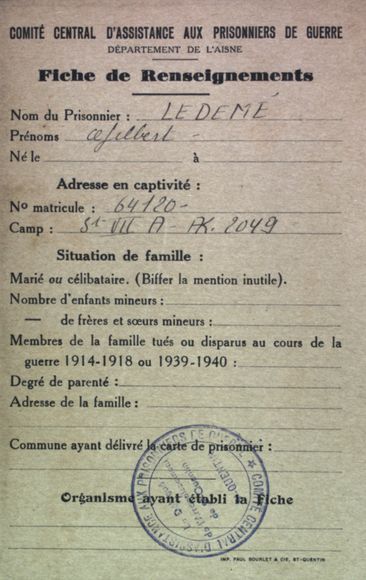 COMITÉ CENTRAL D'ASSISTANCE AUX PRISONNIERS DE GUERRE
DÉPARTEMENT DE L'AISNE
Fiche de Renseignements
Nom du Prisonnier : LEDEMÉ
Prénoms
Né le à
Adresse en captivité :
No matricule : 64120-
Camp : St VII A - AK. 2049
Situation de famille :
Marié ou célibataire. (Biffer la mention inutile).
Nombre d'enfants mineurs :
— de frères et sœurs mineurs :
Membres de la famille tués ou disparus au cours de la
guerre 1914-1918 ou 1939-1940 :
Degré de parenté :
Adresse de la famille :
Commune ayant délivré la carte de prisonnier :
Organisme ayant établi la fiche
COMITÉ CENTRAL D'ASSISTANCE AUX PRISONNIERS DE GUERRE
IMP. PAUL BOURLET & CIE, ST-QUENTIN